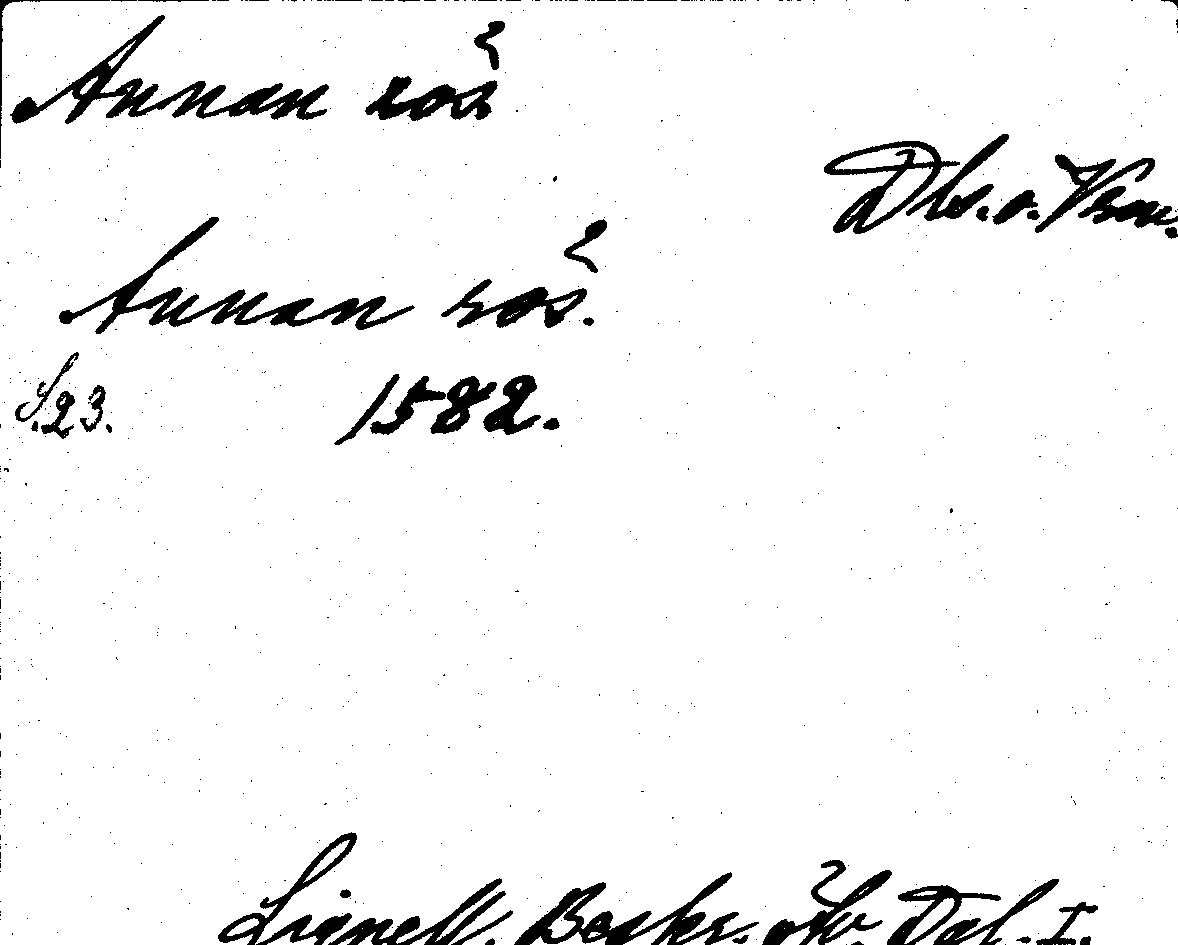 Annan rös
Dls. o. Vrm.
Annan rös.
S. 23. 1582.
Lignell. Beskr. öfv. Dal. I.